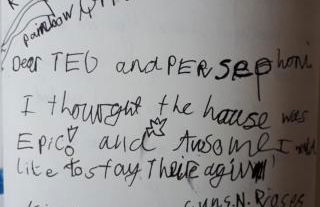 rainbow
Dear TED and PERSephoni
I thowght the hause was
EPic! and Awsome I would
like to stay Theire agiwn